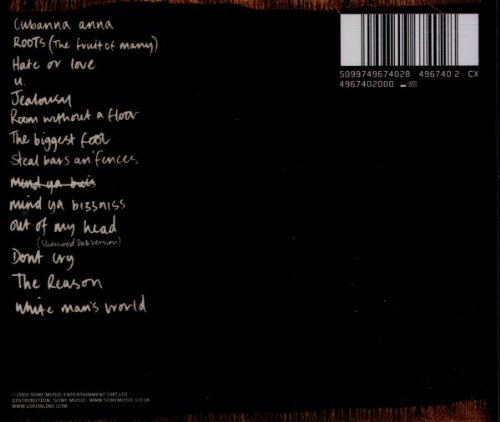 Cubanna anna
ROOTS (The fruit of many)
Hate or love
u.
Jealousy
Room without a floor
The biggest fool
Steal bars an' fences
mind ya bizzniss
out of my head
(Sherwood Dub version)
Dont cry
The Reason
white man's world
5099749674028 496740 2 CX
4967402000
2000 SONY MUSIC ENTERTAINMENT (UK) LTD
DISTRIBUTION: SONY MUSIC. WWW.SONYMUSIC.CO.UK
WWW.LSKONLINE.COM